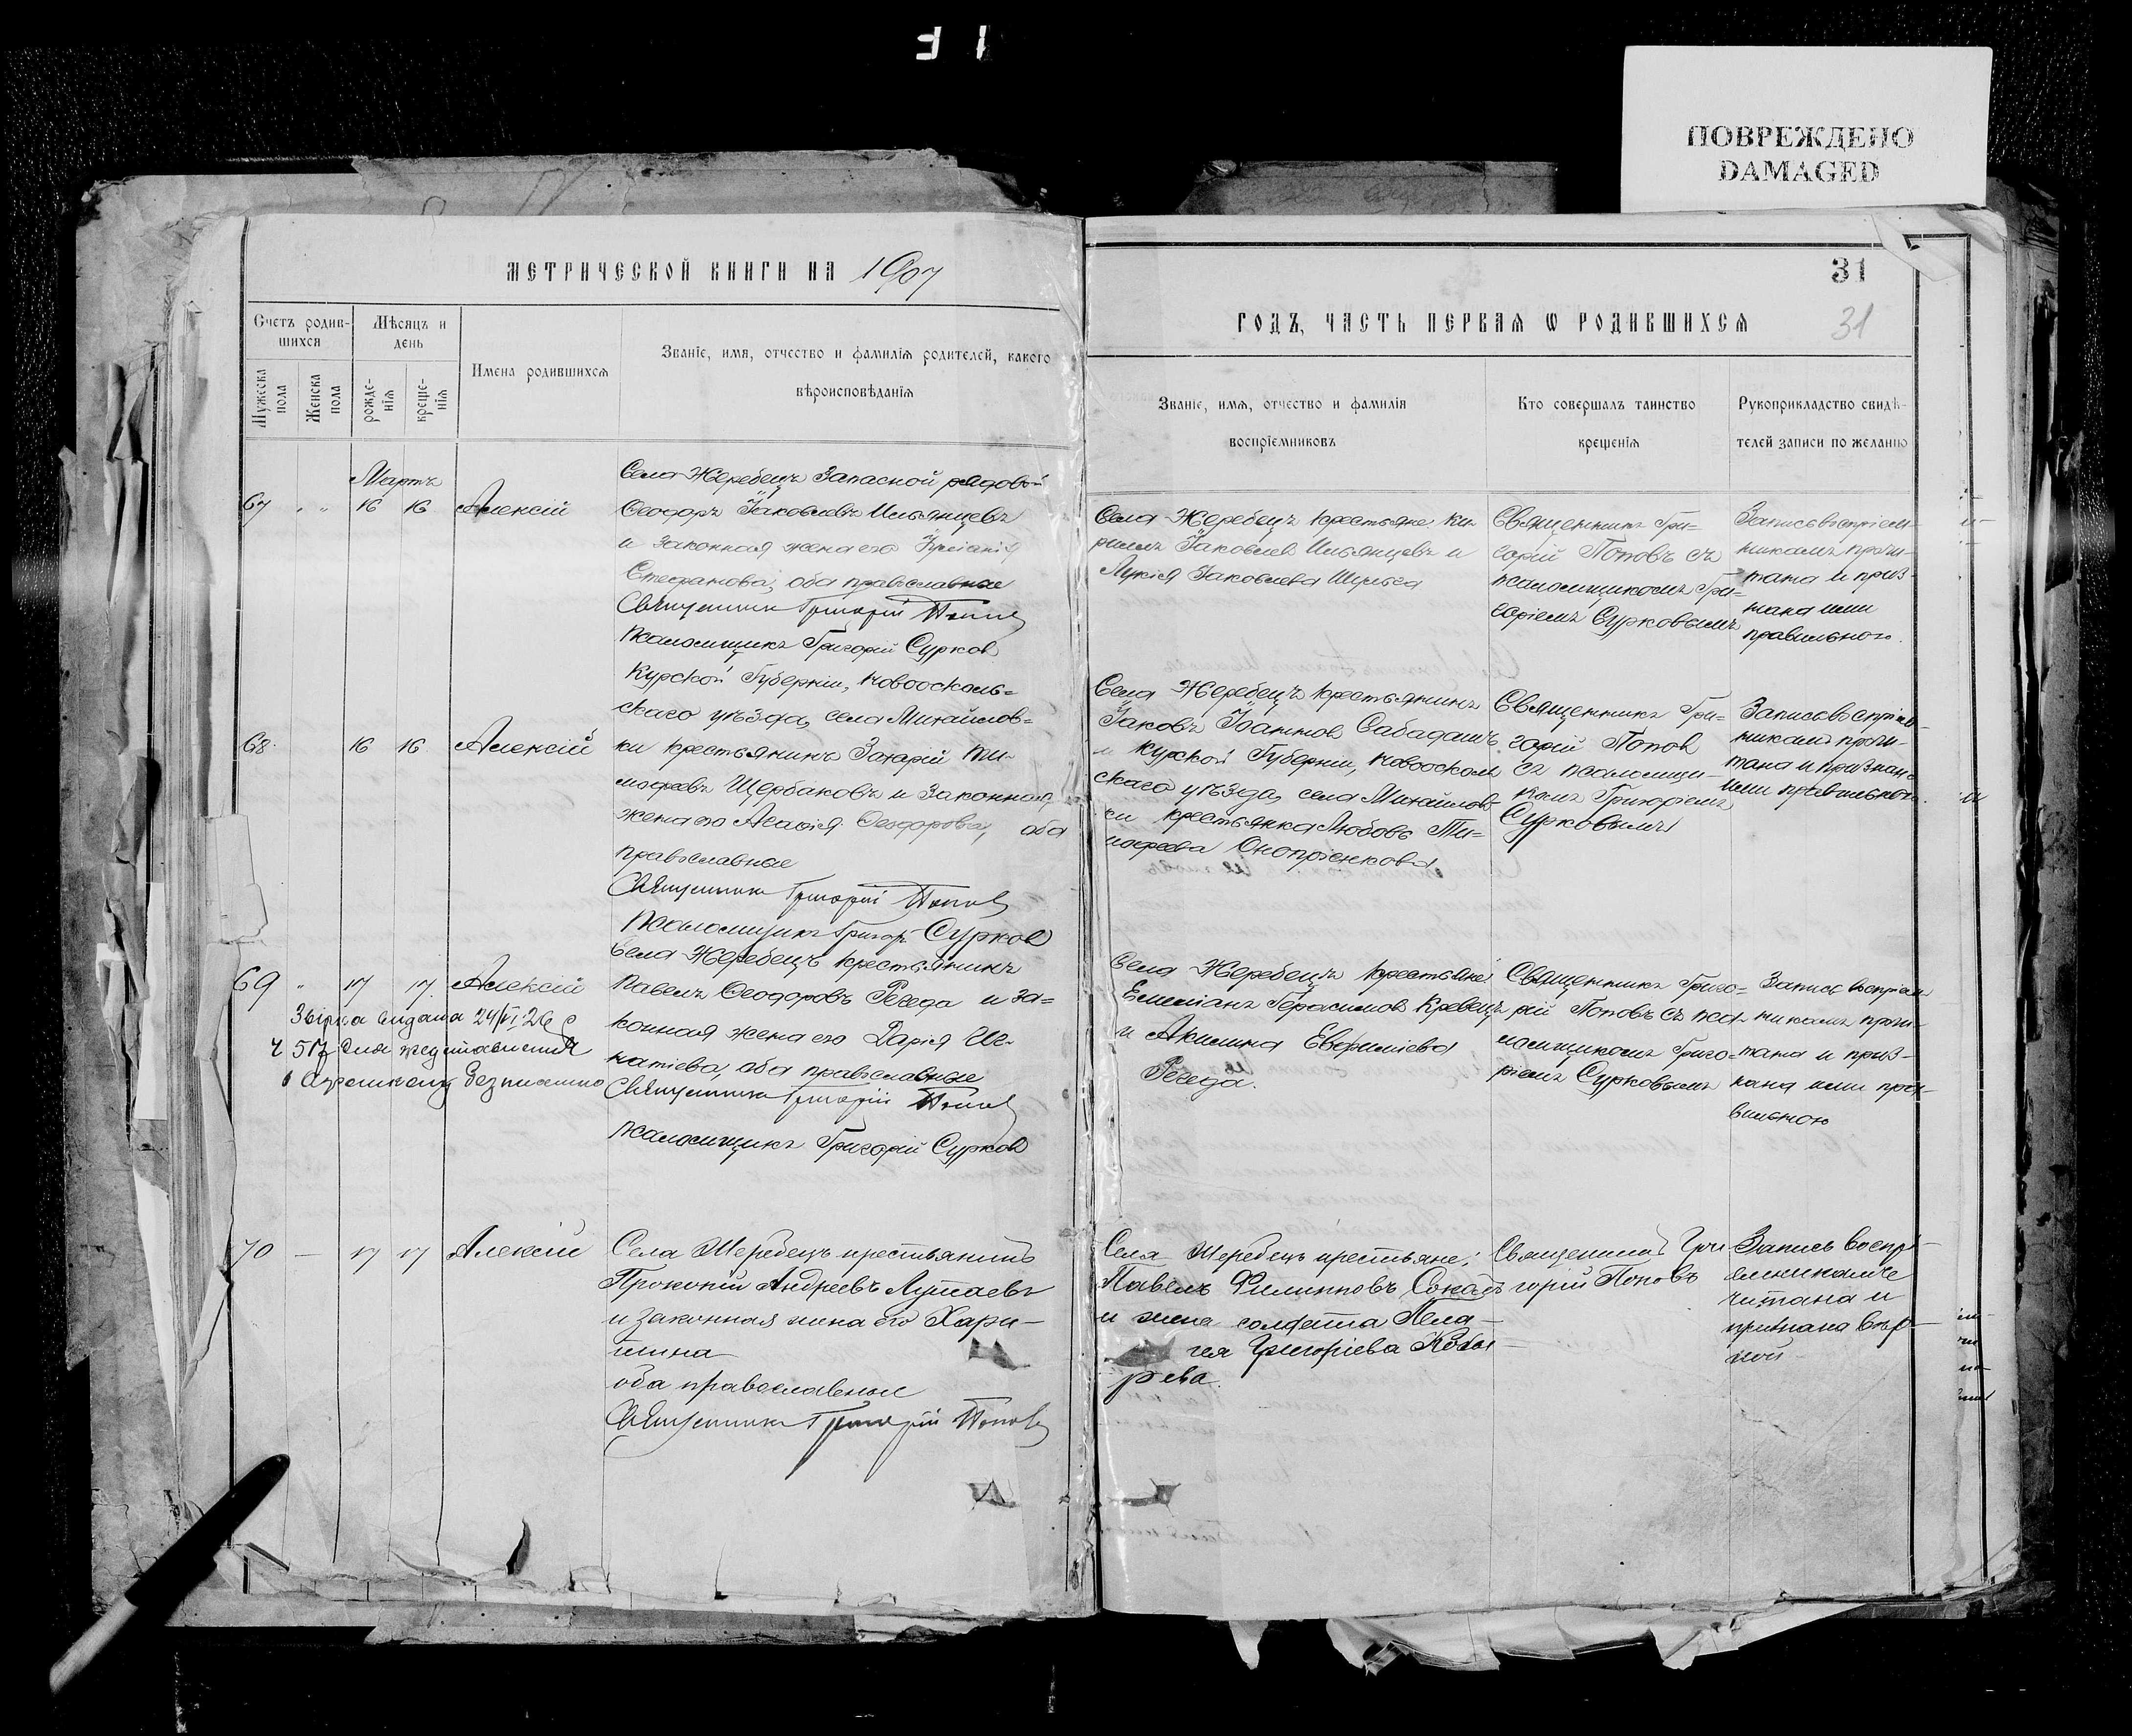 ПОВРЕЖДЕНО
DAMAGED
МЕТРИЧЕСКОЙ КНИГИ НА 1907
Счетъ родив-
шихся
Мужеска
пола
Женска
пола
Мѣсяцъ и
день
рожде-
нія
креще-
нія
Имена родившихся
Званіе, имя, отчество и фамилія родителей, какого
вѣроисповѣданія
31
ГОДЪ, ЧАСТЬ ПЕРВАЯ Ѡ РОДИВШИХСЯ
31
Званіе, имя, отчество и фамилія
воспріемниковъ
Кто совершалъ таинство
крещенія
Рукоприкладство свидѣ-
телей записи по желанію
Мартъ
67 " " 16 16 Алексій
Села Жеребецъ Запасной рядовой
Ѳеодоръ Іаковлевъ Ильянцевъ
и законная жена его
Стефанова, оба православные
Священникъ Григорій Поповъ
Псаломщикъ Григорій Сурков
Села Жеребецъ крестьяне Ки-
риллъ Іаковлев Ильянцевъ и
Лукія Іаковлева
Священникъ Гри-
горій Поповъ съ
псаломщикомъ Гри-
горіемъ Сурковымъ
Запись воспріем-
никамъ прочи-
тана и приз-
нана ими
правильною.
68 16 16 Алексій
Курской Губерніи, Новоосколь-
скаго уѣзда, села Михайлов-
ки крестьянинъ Захарій Ти-
мофеевъ Щербаковъ и законная
жена его Агафія Ѳеодорова, оба
православные
Священникъ Григорій Поповъ
Псаломщикъ Григор. Сурков
Села Жеребецъ крестьянинъ
Іаковъ Іоаннов Сабадашъ
и Курской Губерніи, Новооскол
скаго уѣзда, села Михайлов-
ки крестьянка Любовь Ти-
мофеева Оноприенкова
Священникъ Гри-
горій Попов
съ псаломщи-
комъ Григоріемъ
Сурковымъ
Запись воспріем-
никамъ прочи-
тана и признана
ими правильною.
69 " 17 17 Алексій
Звірка видана 24/VI 26
Ч 517
безплатно
Села Жеребецъ крестьянинъ
Павелъ Ѳеодоровъ Регеда и за-
конная жена его Дарія Иг-
натіева, оба православные
Священникъ Григорій Поповъ
Псаломщикъ Григорій Сурков
Села Жеребецъ крестьяне
Емеліанъ Герасимов Кревецъ
и Акилина Евфиміева
Регеда.
Священникъ Григо-
рій Поповъ съ пса-
ломщикомъ Григо-
ріемъ Сурковымъ
Запись воспріем
никамъ прочи-
тана и приз-
нана ими пра-
вильною
70 — 17 17 Алексій
Села Жеребецъ крестьянинъ
Прокопій Андреевъ Лутаевъ
и законная жена его Хари-
тина
оба православные
Священникъ Григорій Поповъ
Села Жеребецъ крестьяне:
Павелъ Филипповъ Сокалъ
и жена солдата Пела-
гея Григорієва Кобы-
рева.
Священникъ Гри
горій Поповъ
Запись воспрі
емникам че
читана и
признана вѣр-
ной